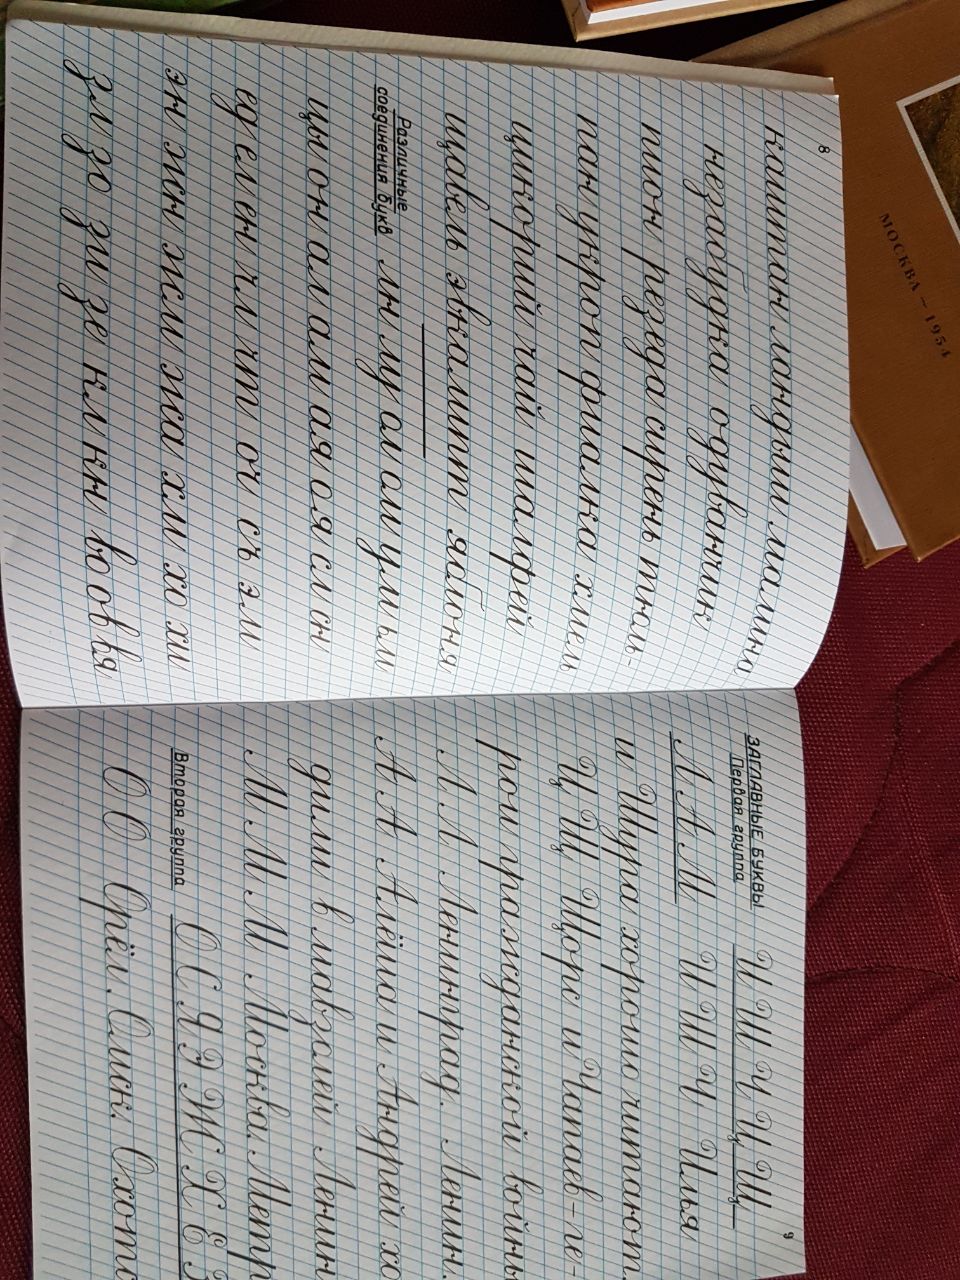 8
каштан ландыш малина
незабудка одуванчик
пион резеда сирень тюль-
пан укроп фиалка хмель
цикорий чай шалфей
щавель эвкалипт яблоня
Различные
соединения букв
лн лу ол ом ул ьл
цы он ал ам ая ол ся сл сн
ед ел ен чл чт оч съ эл
эн жн жл жа хл хо хи
зл зо зи зе кл кн во ов вя
ЗАГЛАВНЫЕ БУКВЫ
Первая группа
И Ш Ч Ц Щ
Л А М И Ш Ч Илья
и Шура хорошо читают.
Ц Щ Щорс и Чапаев-ге-
рои гражданской войны
Л Л Ленинград. Ленин.
А А Алёша и Андрей хо
дили в мавзолей Ленин
М М М Москва. Метр
Вторая группа
О С Я Э Ж Х Е З
О О Орёл. Омск. Охот
9
МОСКВА – 1954